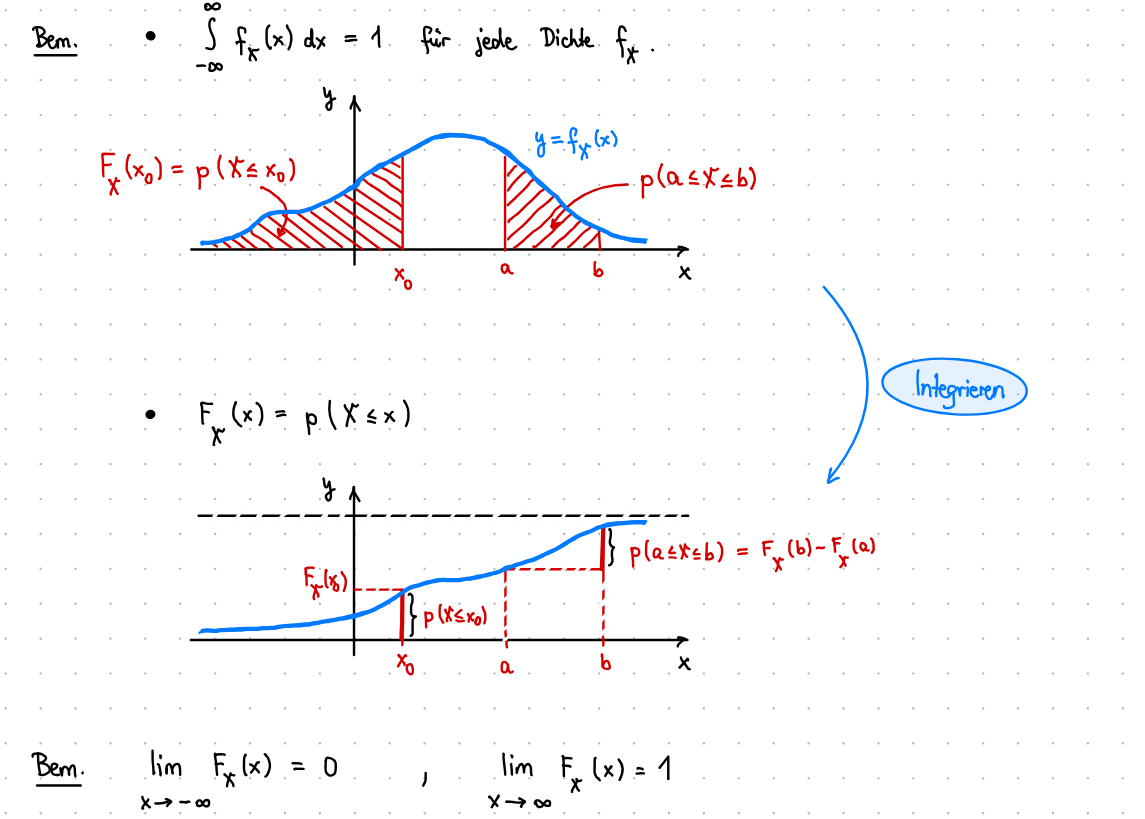 Bem. • ∫_{-∞}^{∞} f_X(x) dx = 1 für jede Dichte f_X.
y
y = f_X(x)
F_X(x₀) = p(X ≤ x₀)
p(a ≤ X ≤ b)
x₀ a b x
Integrieren
• F_X(x) = p(X ≤ x)
y
p(a ≤ X ≤ b) = F_X(b) - F_X(a)
F_X(x₀)
p(X ≤ x₀)
x₀ a b x
Bem. lim_{x→-∞} F_X(x) = 0 , lim_{x→∞} F_X(x) = 1